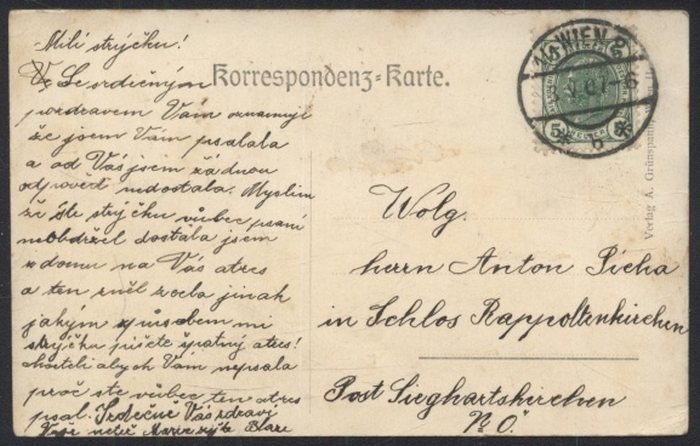 Milí strýčku!
Se srdečným
pozdravem Vám oznamuji
že jsem Vám psalala
a od Vás jsem žádnou
odpověď nedostala. Myslim
že ste strýčku vůbec psaní
neobdržel dostala jsem
z domu na Vás atres
a ten zněl zcela jinak
jakým způsobem mi
strýčku píšete špatný atres!
chcíteli abych Vám nepsala
proč ste vůbec ten atres
psal. Srdečně Vás zdraví
Vaše neteř Marie
Korrespondenz-Karte.
WIEN
5 5
HELLER
6
Verlag A. Grünspan
Wolg.
herrn Anton Picha
in Schlos Rappoltenkirchen
Post Sieghartskirchen
N.Ö.